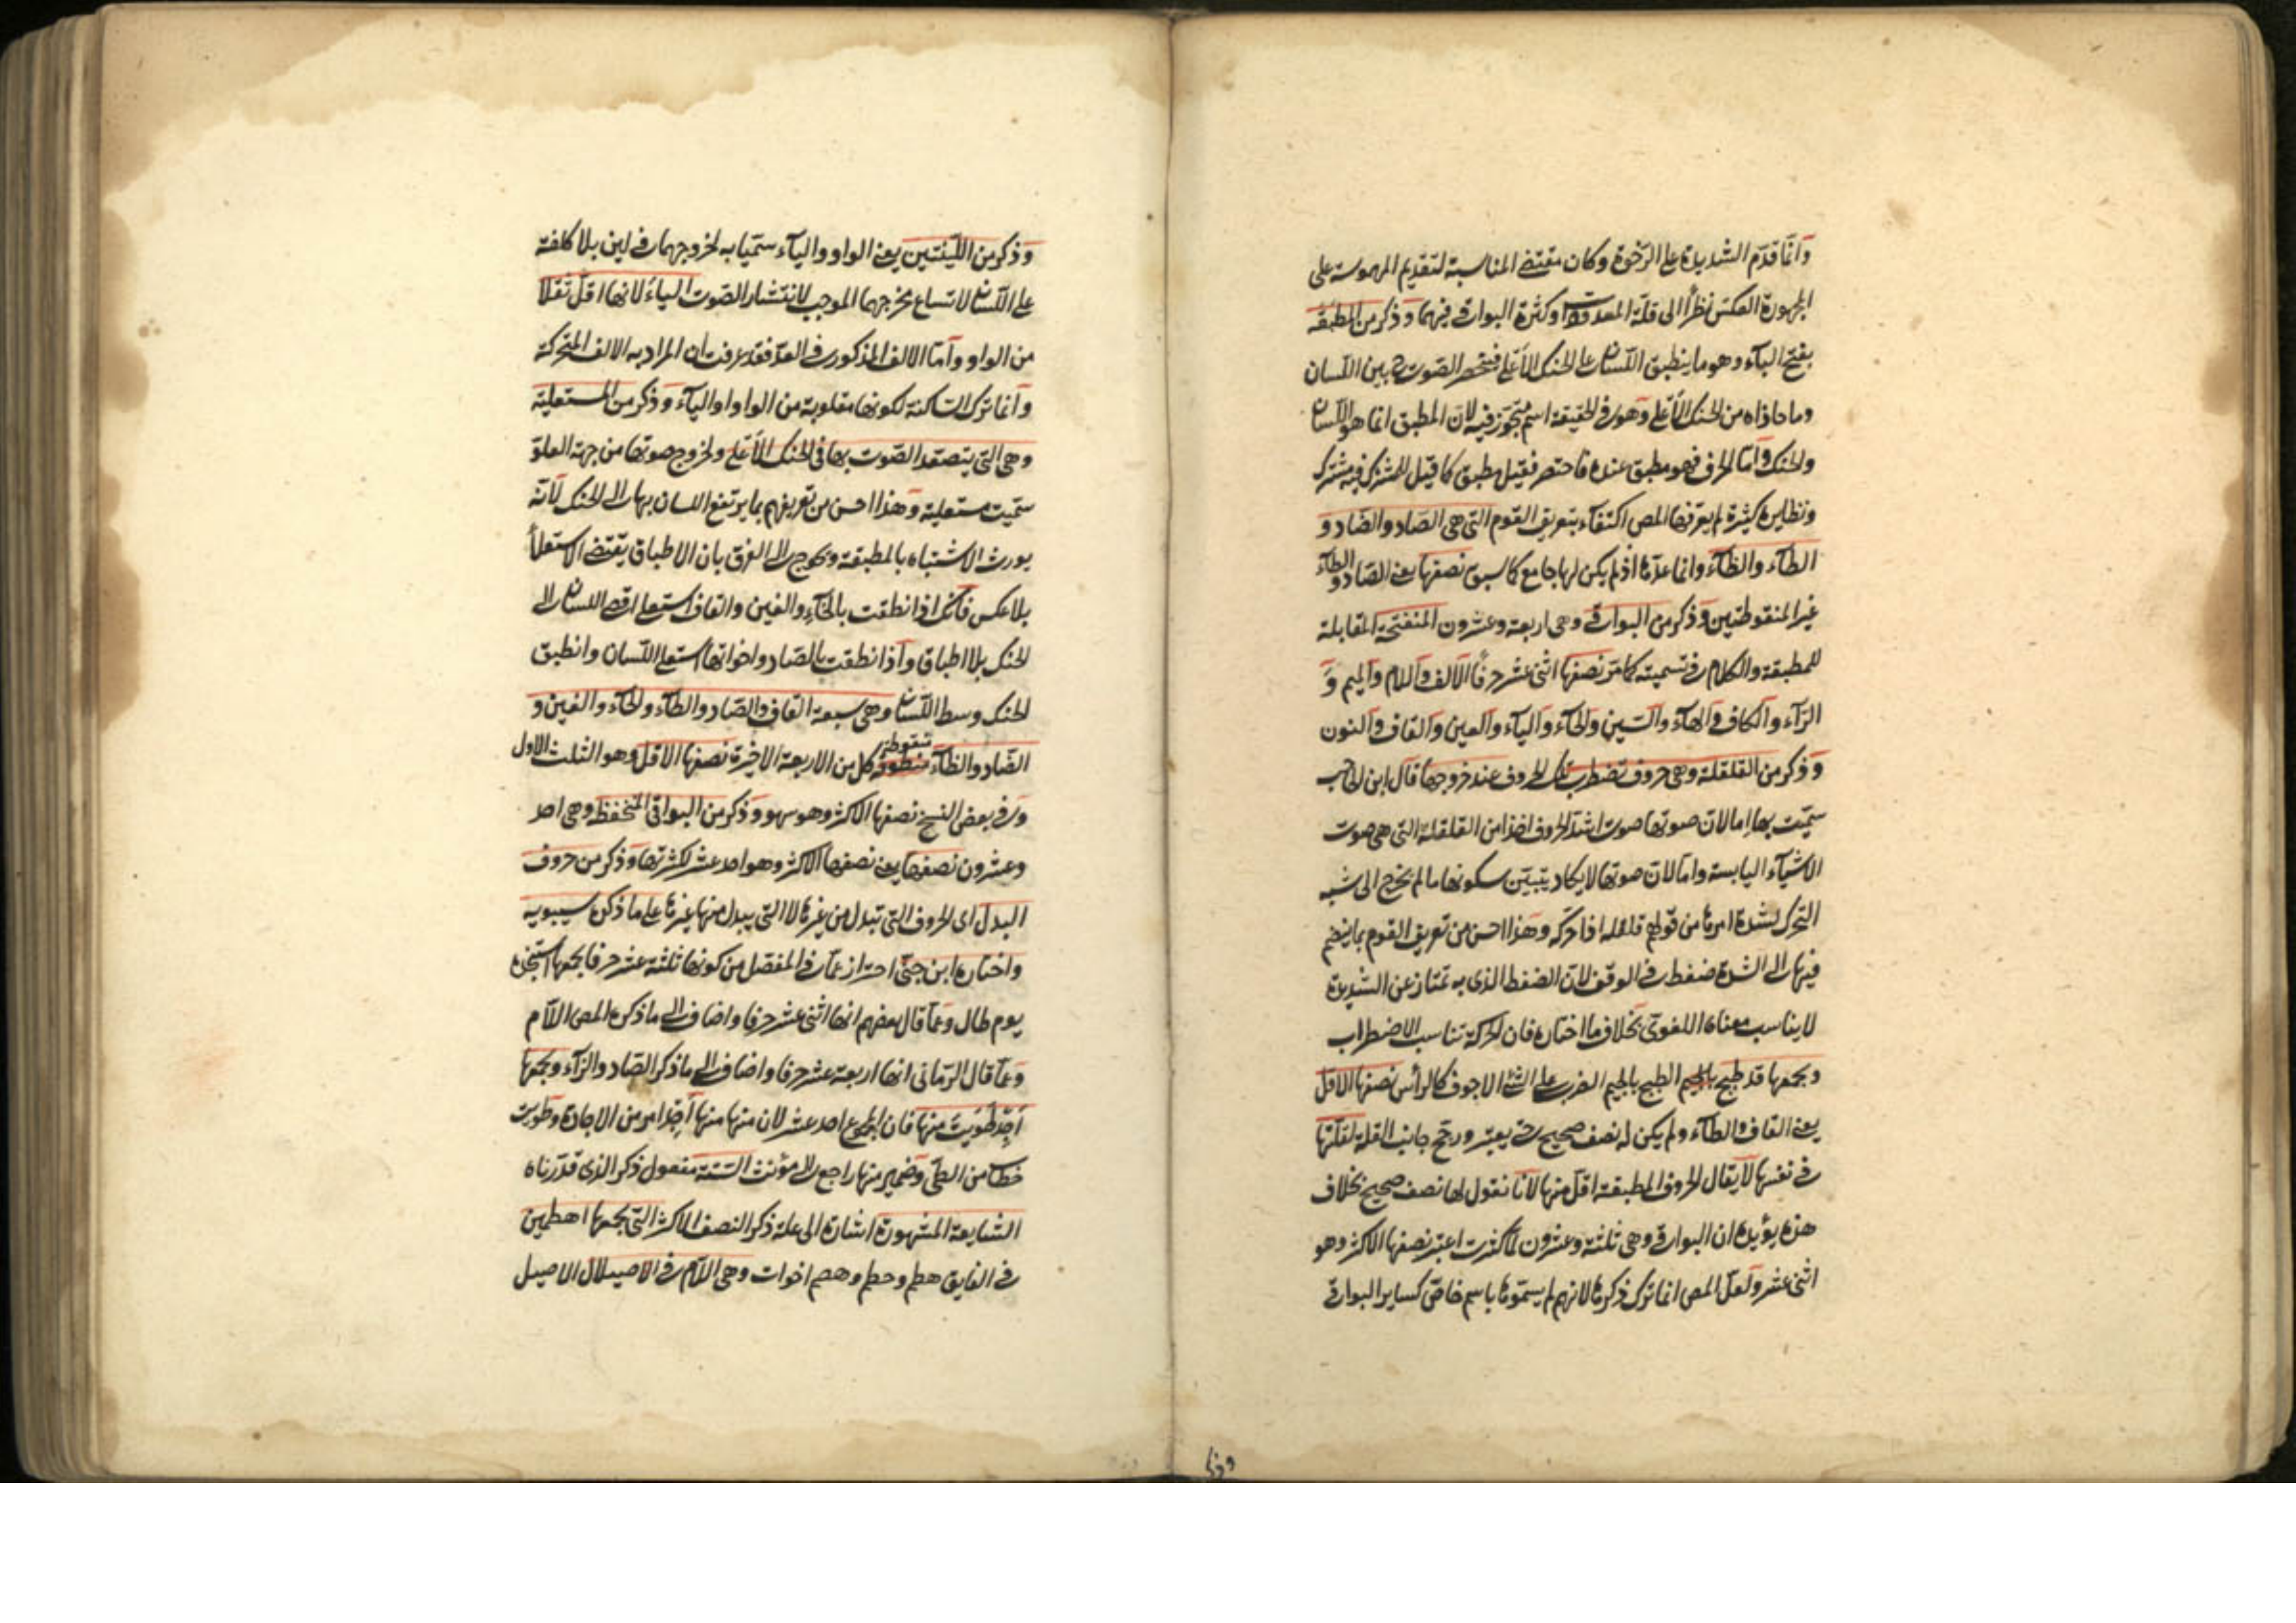 وانما قدم الشديدة على الرخوة وكان مقتضى المناسبة لتقديم المهموسة على
المجهورة العكس نظرا الى قلة المعدودة وكثرة البواقي فيهما وذكر من المطبقة
بفتح الباء وهو ما ينطبق اللسان على الحنك الأعلى فينحصر الصوت ح بين اللسان
وما حاذاه من الحنك الأعلى وهو في الحقيقة اسم متجوز فيه لان المطبق انما هو اللسان
والحنك واما الحرف فهو مطبق عنده فاختصر فقيل مطبق كما قيل للمشترك فيه مشترك
ونظايره كثيرة لم يعرفها المص اكتفاء بتعريف القوم التي هي الصاد والضاد و
الطاء والظاء وانما عدها اذ لم يكن لها جامع كما سبق نصفها يعني الصاد والطاء
غير المنقوطتين وذكر من البواقي وهي اربعة وعشرون المنفتحة المقابلة
للمطبقة والكلام في تسميته كما مر نصفها اثنى عشر حرفا الالف واللام والميم و
الراء والكاف والهاء والسين والحاء والياء والعين والقاف والنون
وذكر من القلقلة وهي حروف تضطرب تلك الحروف عند خروجها قال ابن الحاجب
سميت بها اما لان صوتها صوت اشد الحروف اخذا من القلقلة التي هي صوت
الاشياء اليابسة واما لان صوتها لا يكاد يتبين سكونها ما لم يخرج الى شبه
التحرك لشدة امرها من قولهم قلقله اذا حركه وهذا احسن من تعريف القوم بما ينضم
فيها الى الشدة ضغط في الوقف لان الضغط الذي به تمتاز عن الشديدة
لا يناسب معناه اللغوي بخلاف ما اختاره فان الحركة تناسب الاضطراب
ويجمعها قد طبج بالجيم الطبج بالجيم الضرب على الشئ الاجوف كالرأس نصفها الاقل
يعني القاف والطاء ولم يكن له نصف صحيح حتى يعتبر ورجح جانب القلة لقلتها
في نفسها لا يقال الحروف المطبقة اقل منها لانا نقول لها نصف صحيح بخلاف
هذه يؤيده ان البواقي وهي ثلثة وعشرون لما كثرت اعتبر نصفها الاكثر وهو
اثنى عشر ولعل المص انما ترك ذكرها لانهم لم يسموها باسم خاص كساير البواقي
وذكر من اللينتين يعني الواو والياء سميا به لخروجهما في لين بلا كلفة
على اللسان لاتساع مخرجهما الموجب لانتشار الصوت الياء لانها اقل ثقلا
من الواو واما الالف المذكور في العد فقد عرفت ان المراد به الالف المتحركة
وانما ترك الساكنة لكونها مقلوبة من الواو او الياء وذكر من المستعلية
وهي التي يتصعد الصوت بها في الحنك الأعلى ولخروج صوتها من جهة العلو
سميت مستعلية وهذا احسن من تعريفهم بما يرتفع اللسان بها الى الحنك لانه
يورث الاشتباه بالمطبقة ويحوج الى الفرق بان الاطباق يقتضي الاستعلا
بلا عكس فانك اذا نطقت بالخاء والغين والقاف استعلى اقصى اللسان الى
الحنك بلا اطباق واذا نطقت بالصاد واخواتها استعلى اللسان وانطبق
الحنك وسط اللسان وهي سبعة القاف والصاد والطاء والخاء والغين و
الضاد والظاء منقوطة كل من الاربعة الاخيرة نصفها الاقل وهو الثلث الاول
وفي بعض النسخ نصفها الاكثر وهو سهو وذكر من البواقي المنخفظه وهي احد
وعشرون نصفها يعني نصفها الاكثر وهو احد عشر لكثرتها وذكر من حروف
البدل اى الحروف التي تبدل من غيرها لا التي يبدل منها غيرها على ما ذكره سيبويه
واختاره ابن جني احتراز عما في المفصل من كونها ثلثة عشر حرفا يجمعها استنجده
يوم طال وعما قال بعضهم انها اثنى عشر حرفا واضاف الى ما ذكره المص اللام
وعما قال الرماني انها اربعة عشر حرفا واضاف الى ما ذكر الصاد والزاء ويجمعها
اجد طويت منها فان المجموع احد عشر لان منها منها أجد امر من الاجادة وطويت
خطا من الطي وضمير منها راجع الى مؤنث الستة مفعول ذكر الذي قدرناه
الشايعة المشهورة اشارة الى علة ذكر النصف الاكثر التي يجمعها اهطمين
في الفايق هطم وحطم وهصم اخوات وهي اللام في الاصيلال الاصيل
وذكر